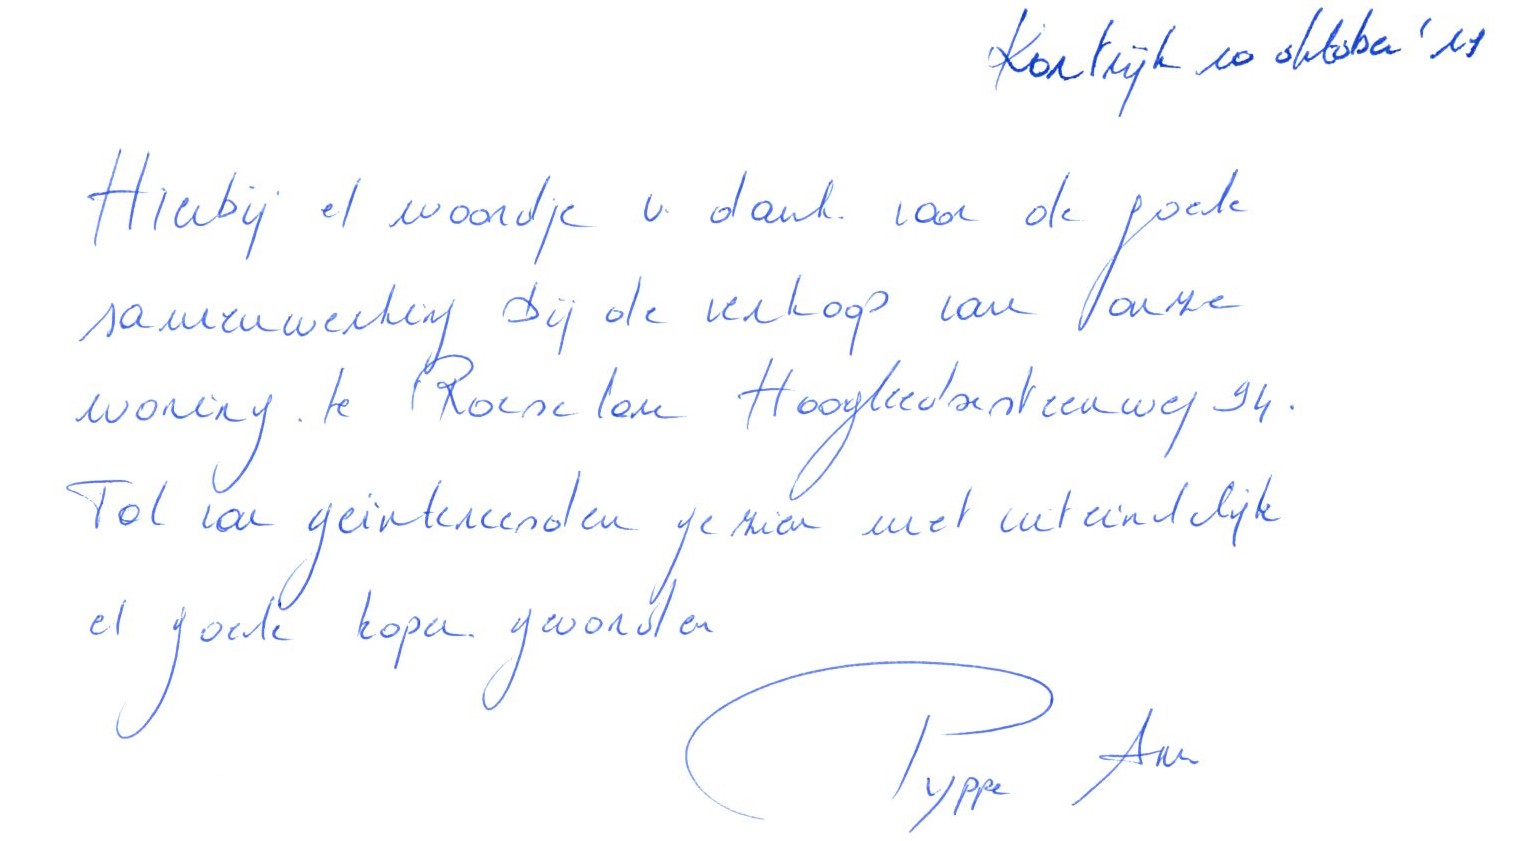 Kortrijk 10 oktober '19
Hierbij et woordje v. dank. voor de goede
samenwerking bij de verkoop van onze
woning. te Roeselare Hoogleedsesteenweg 94.
Tal van geinteresseerden gezien met uiteindelijk
et goede koper. geworden
Pyppe Ann